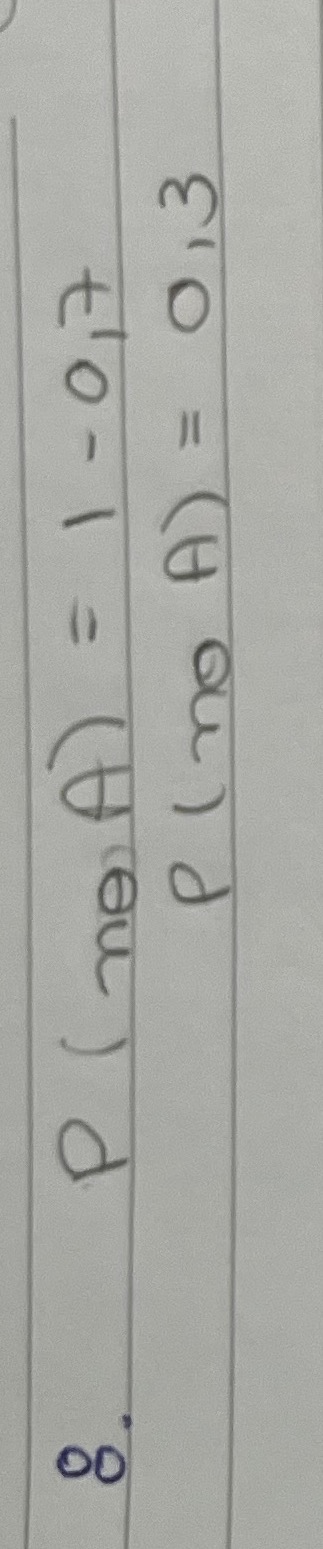 8. P (no A) = 1 - 0,7
P (no A) = 0,3